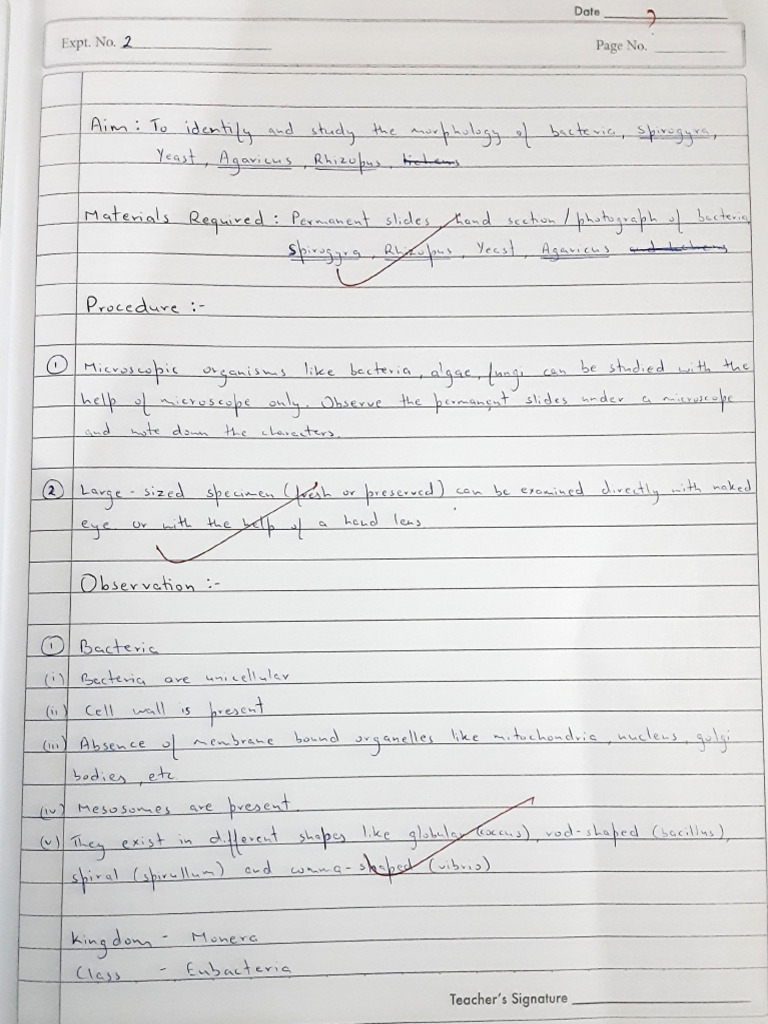 Date
Expt. No. 2
Page No.
Aim : To identify and study the morphology of bacteria, Spirogyra,
Yeast, Agaricus, Rhizopus,
Materials Required : Permanent slides hand section / photograph of bacteria
Spirogyra, Rhizopus, Yeast, Agaricus
Procedure :-
① Microscopic organisms like bacteria, algae, fungi can be studied with the
help of microscope only. Observe the permanent slides under a microscope
and note down the characters.
② Large-sized specimen (fresh or preserved) can be examined directly with naked
eye or with the help of a hand lens
Observation :-
① Bacteria
(i) Bacteria are unicellular
(ii) Cell wall is present
(iii) Absence of membrane bound organelles like mitochondria, nucleus, golgi
bodies, etc
(iv) Mesosomes are present.
(v) They exist in different shapes like globular (coccus), rod-shaped (bacillus),
spiral (spirullum) and comma-shaped (vibrio)
Kingdom - Monera
Class - Eubacteria
Teacher's Signature